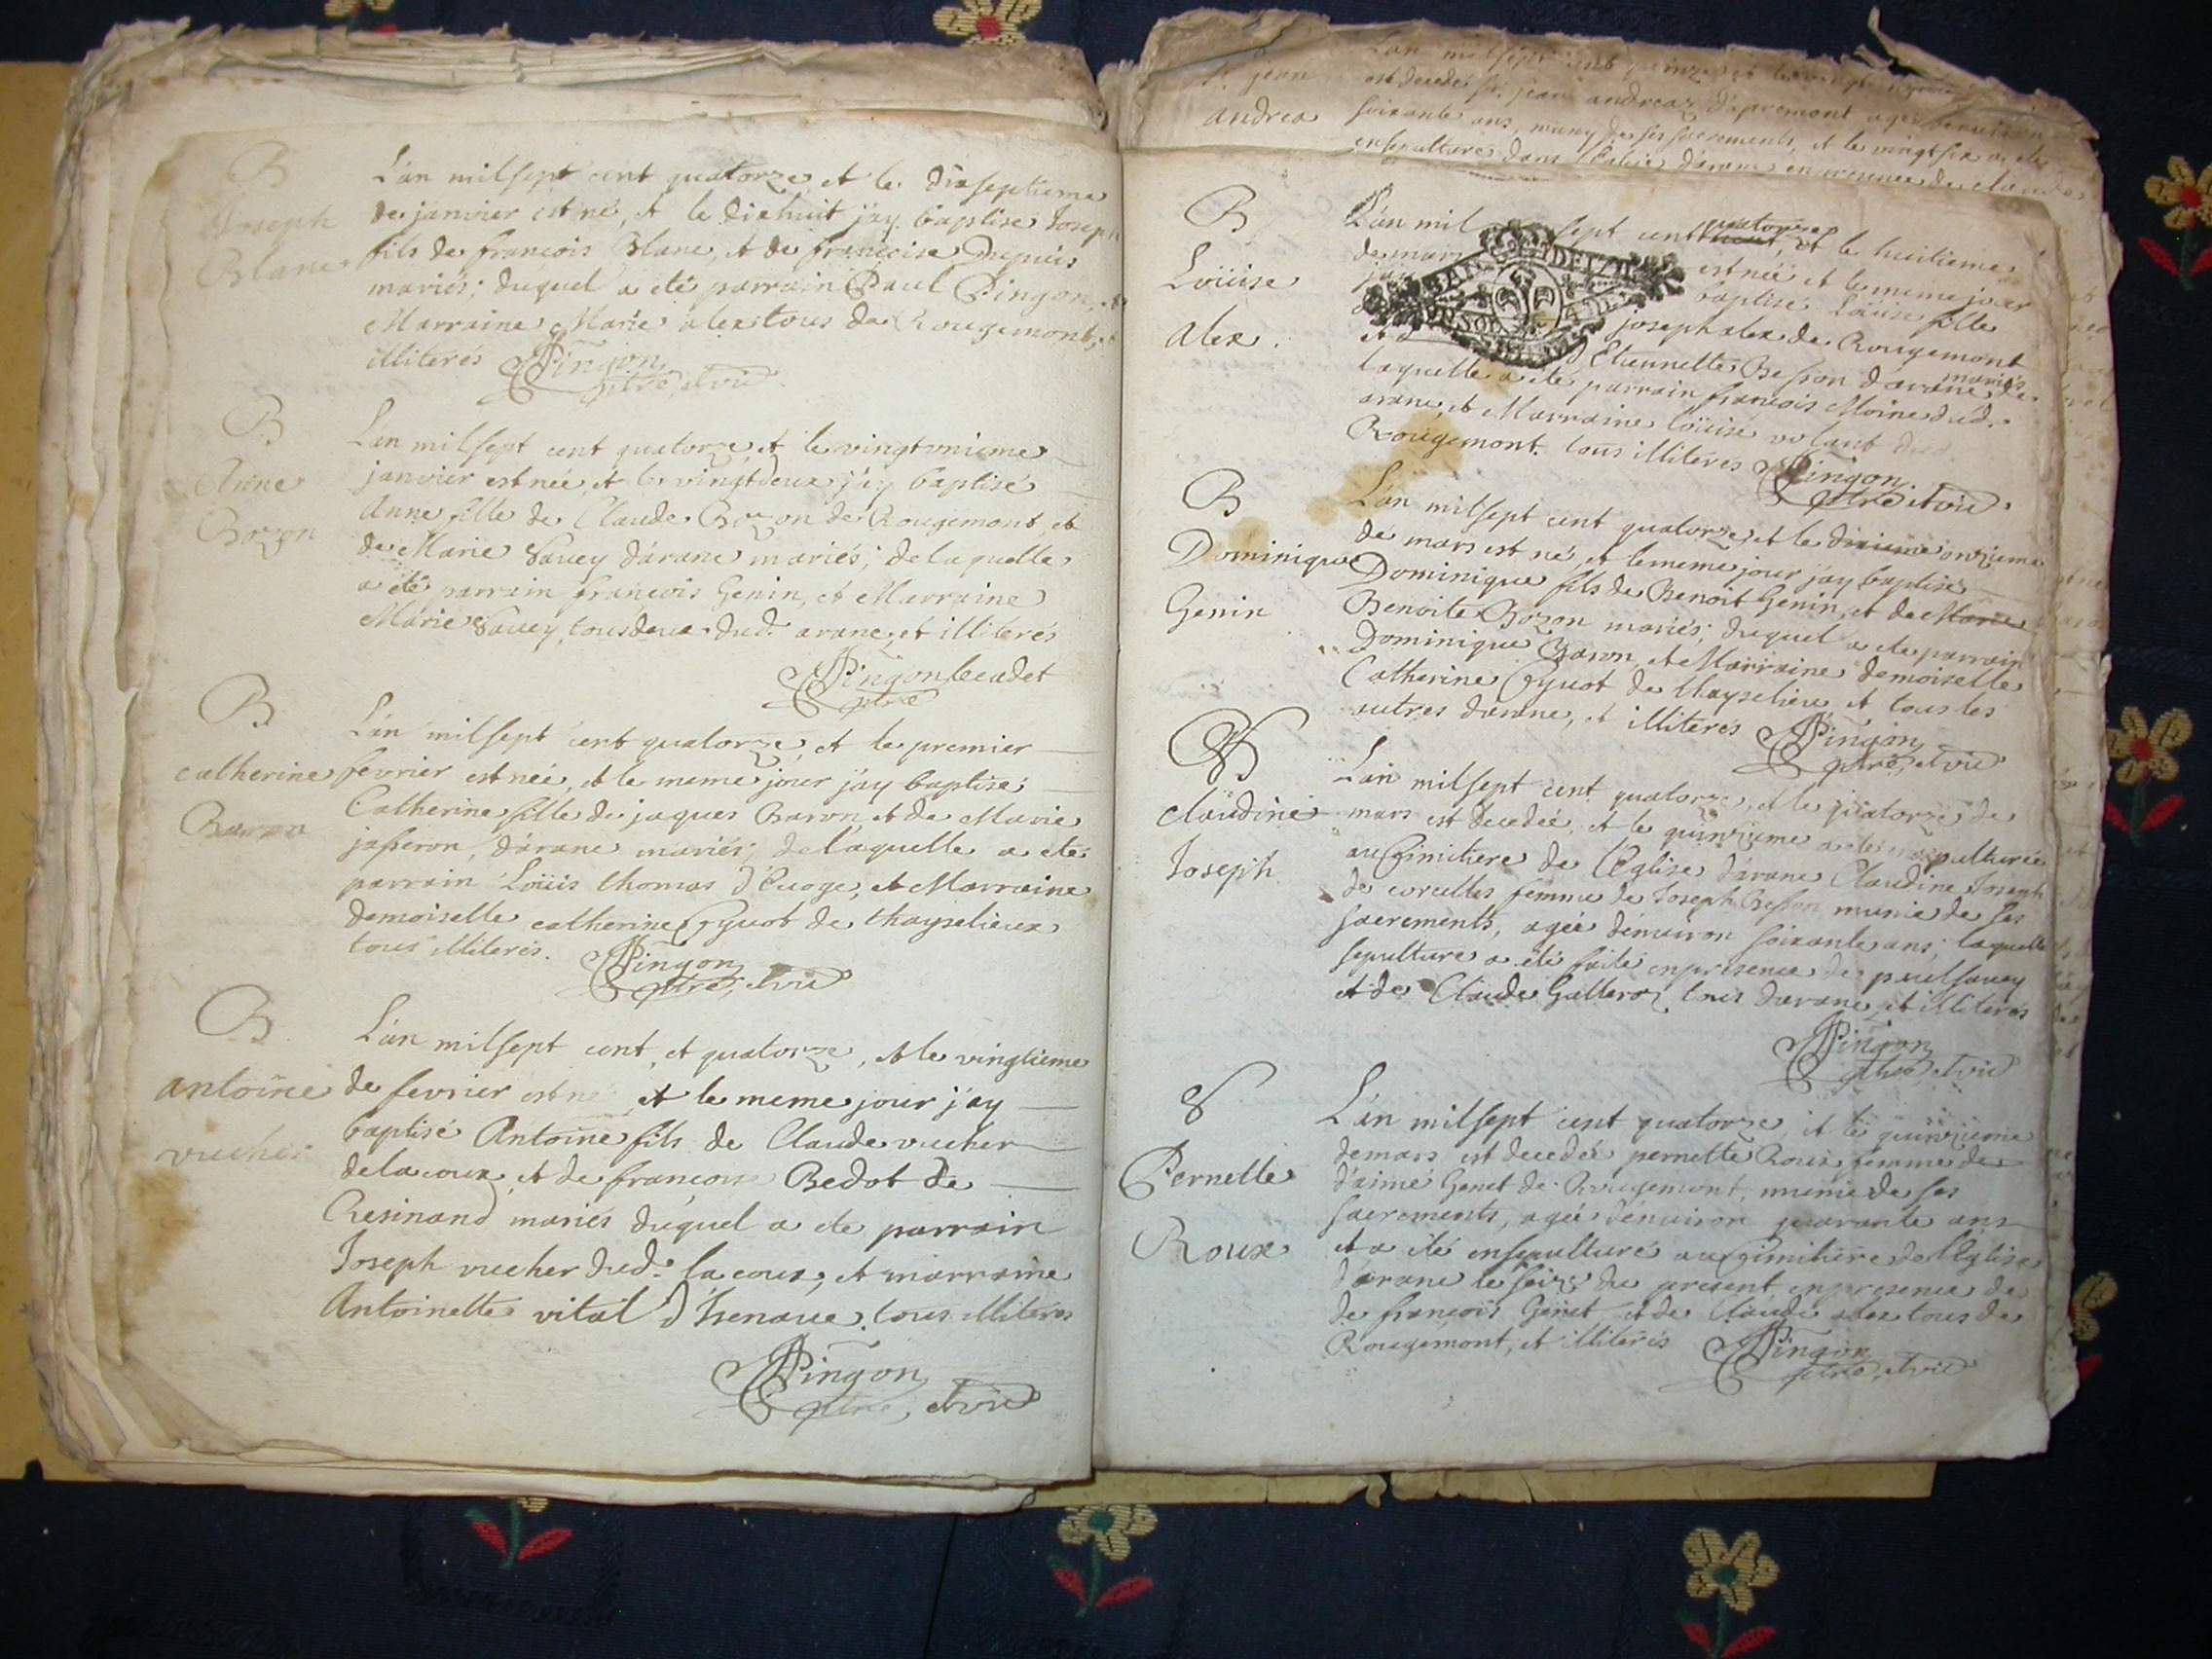 B
Joseph
Blanc
L'an mil sept cent quatorze, et le dixseptieme
de janvier est né, et le dixhuit j'ay baptisé Joseph
fils de françois Blanc, et de françoise Dupuis
mariés; duquel a eté parrain Paul Pingon, et
Marraine Marie alex tous de Rougemont, et
illiterés Pingon
ptre, et vic
B
Anne
Bozon
L'an mil sept cent quatorze, et le vingtunieme
janvier est née, et le vingtdeux j'ay baptisé
Anne fille de Claude Bozon de Rougemont, et
de Marie Savey d'arane mariés; de laquelle
a eté parrain françois Genin, et Marraine
Marie Savey, tous deux dud. arane, et illiterés
Pingon le cadet
ptre
B
catherine
Baron
L'an mil sept cent quatorze, et le premier
fevrier est née, et le meme jour j'ay baptisé
Catherine fille de jaques Baron, et de Marie
jasseron, d'arane mariés; de laquelle a eté
parrain Loüis thomas d'Evoge, et Marraine
demoiselle catherine Gyuot de thayselieux
tous illiterés. Pingon
ptre, et vic
B
antoine
vucher
L'an mil sept cent, et quatorze, et le vingtieme
de fevrier est né, et le meme jour j'ay
baptisé Antoine fils de Claude vucher
de lacoux, et de francoise Bedot de
Resinand mariés duquel a eté parrain
Joseph vucher dud. la coux, et marraine
Antoinette vital d'Izenave. tous illiterés
Pingon
ptre, et vic
Sr. jean
andrea
L'an mil sept cent quinze et le vingt
est decedé Sr. jean andreaz d'apremont agé d'environ
soixante ans, muny de ses sacrements, et le vingt six a eté
ensepulturé dans l'Eglise d'arane en presence de claude
B
Loüise
Alex.
L'an mil sept cent quatorze, et le huitieme
de mars est née et le meme jour
j'ay baptisé Loüise fille
de joseph alex de Rougemont
et d'Etiennette Besson d'arane mariés, de
laquelle a eté parrain françois Moine dud.
arane, et Marraine loüise volant dud.
Rougemont. tous illiterés Pingon
ptre et vic
B
Dominique
Genin
L'an mil sept cent quatorze, et le dixieme onzieme
de mars est né, et le meme jour j'ay baptisé
Dominique fils de Benoit Genin, et de Marie
Benoite Bozon mariés; duquel a eté parrain
Dominique Baron, et Marraine demoiselle
Catherine Gyuot de thayselieu, et tous les
autres d'arane, et illiterés Pingon
ptre, et vic
Claudine
Joseph
L'an mil sept cent quatorze, et le quatorze de
mars est decedée, et le quinzieme a eté ensepulturée
au Cimitiere de l'Eglise d'arane Claudine Joseph
de corcelles femme de Joseph Besson munie de ses
sacrements, agée d'environ soixante ans; laquelle
sepulture a eté faite en presence de paul savey
et de Claude Galleroz tous d'arane, et illiterés
Pingon
ptre, et vic
S
Pernette
Roux
L'an mil sept cent quatorze, et le quinzieme
de mars est decedée pernette Roux femme de
d'aimé Genet de Rougemont, munie de ses
sacrements, agée d'environ quarante ans
et a eté ensepulturé au Cimitiere de l'Eglise
d'arane le seize du present, en presence de
de françois Genet, et de Claude alex tous de
Rougemont, et illiterés Pingon
ptre, et vic